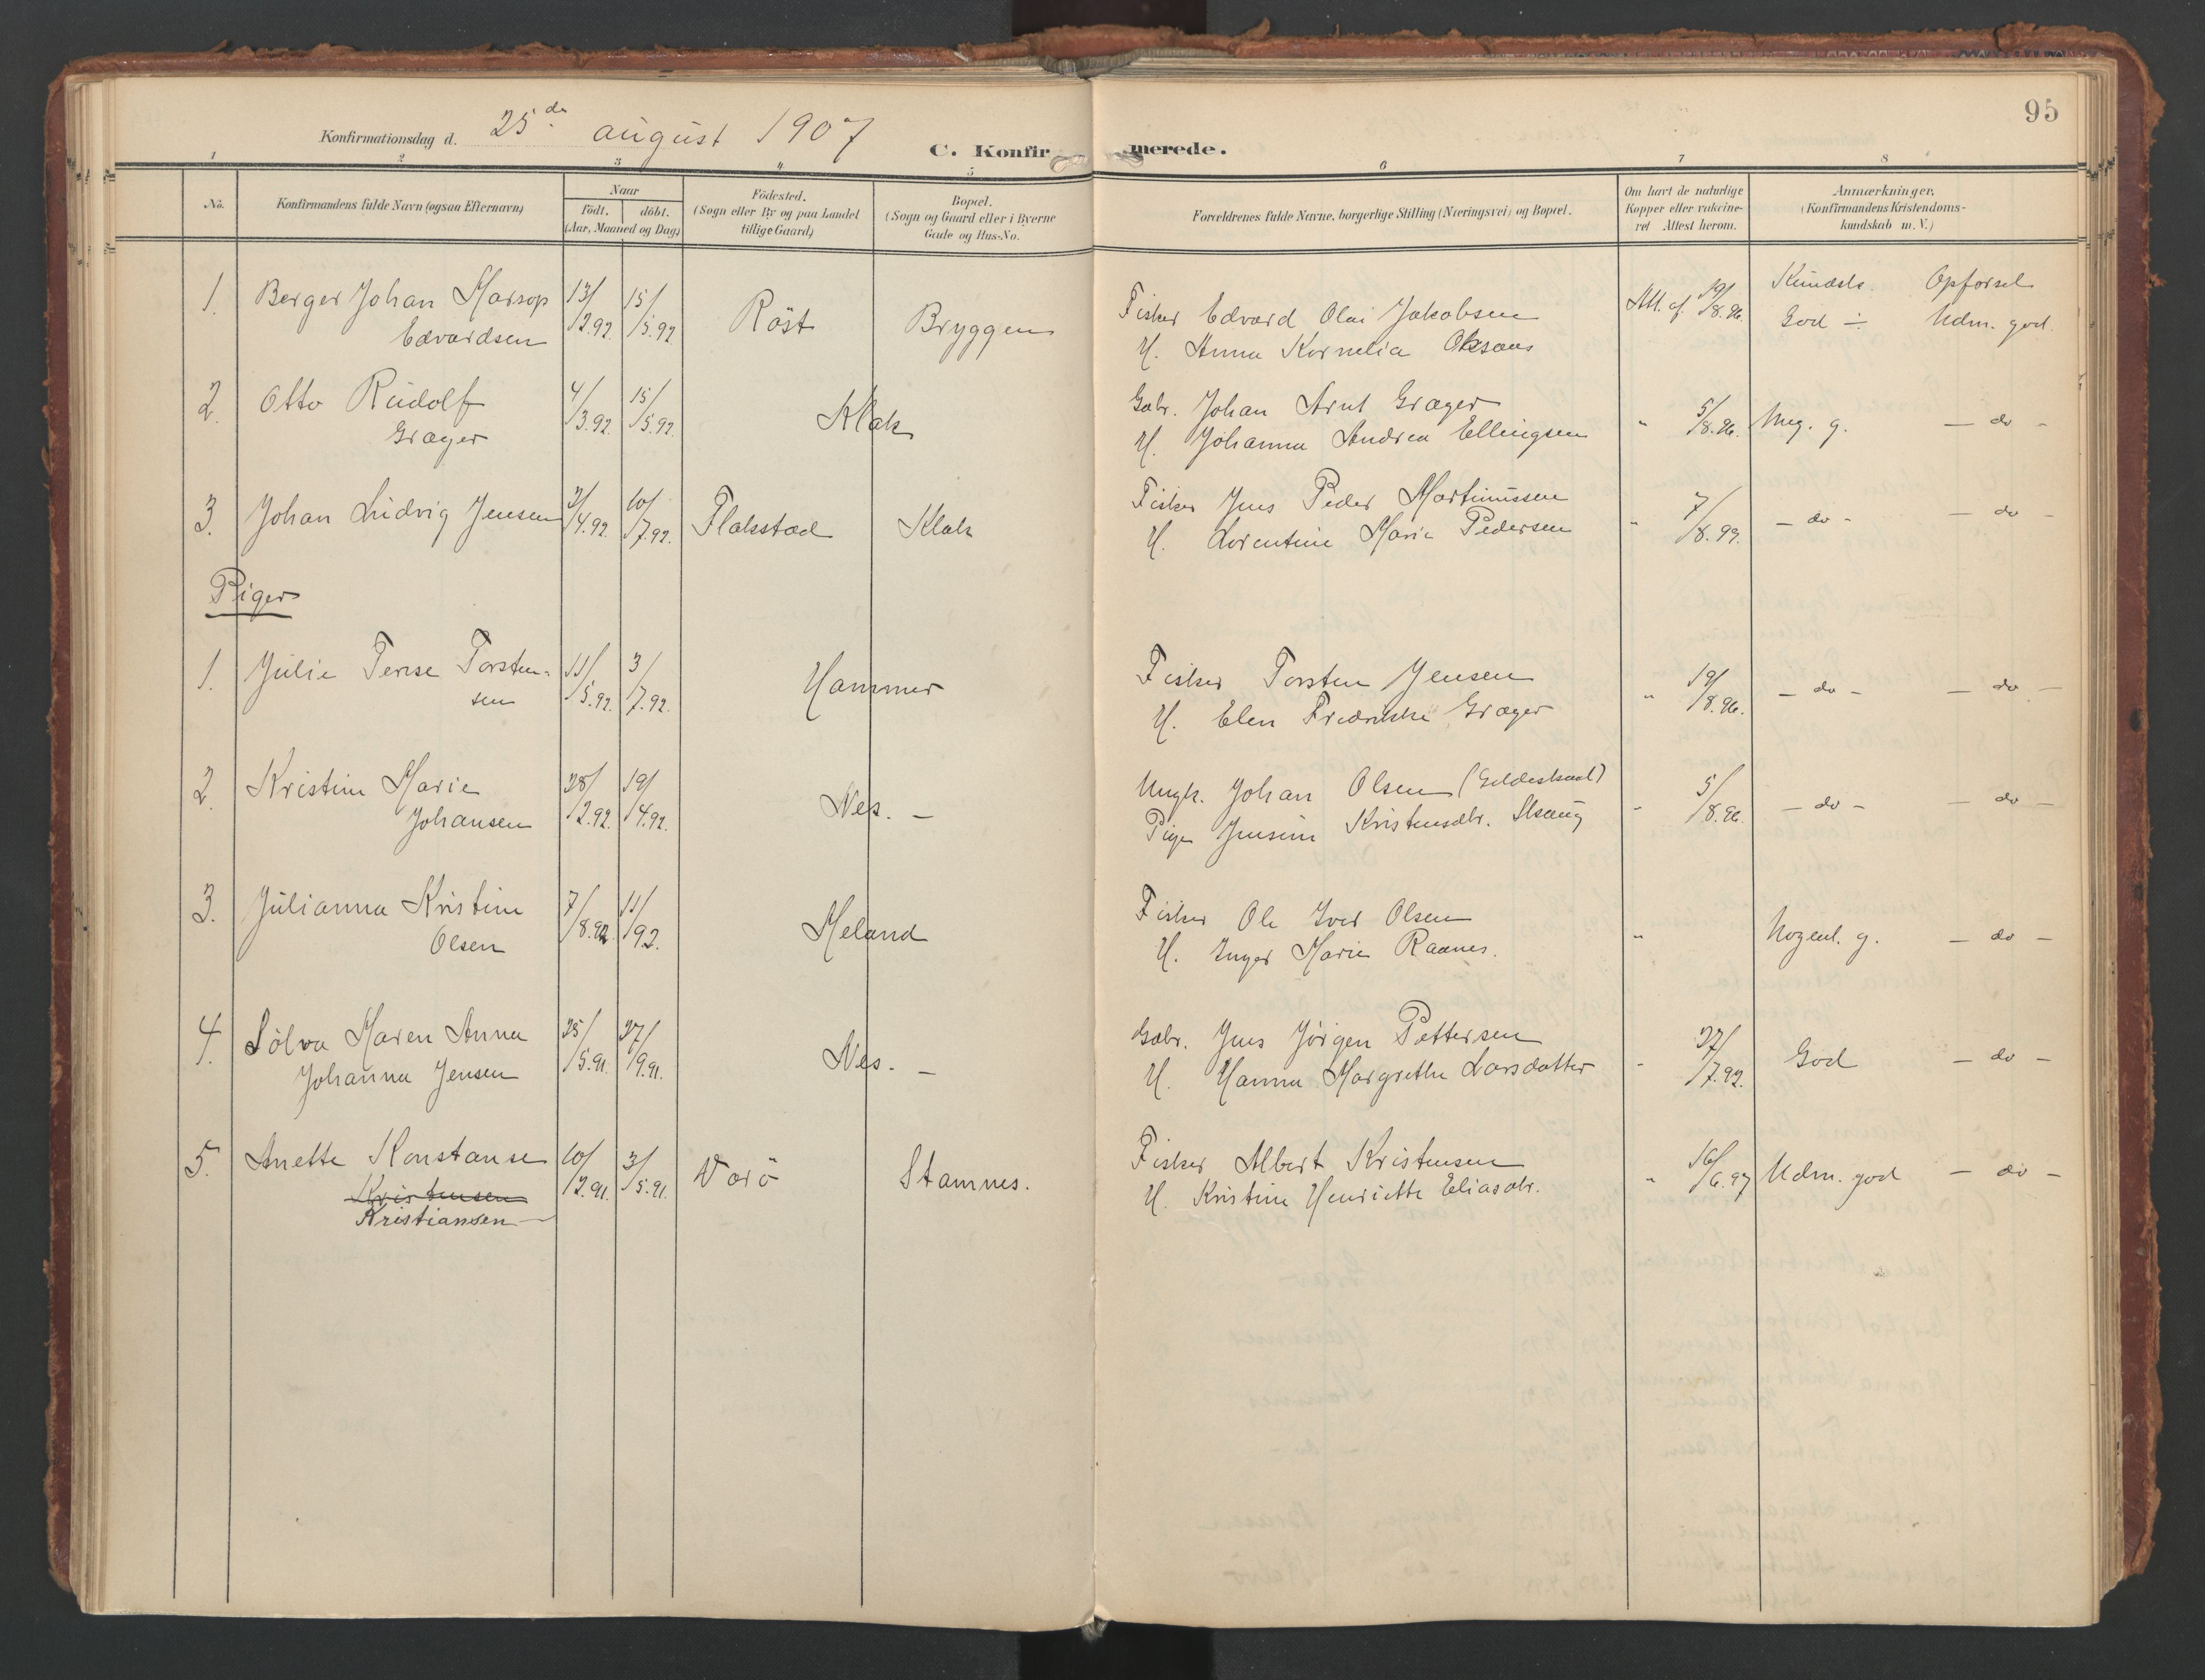 95
Konfirmationsdag d. 25de august 1907
C. Konfirmerede.
1 2 3 4 5 6 7 8
No. Konfirmandens fulde Navn (ogsaa Efternavn) Naar født. døbt. (Aar, Maaned og Dag) Fødested. (Sogn eller By og paa Landet tillige Gaard) Bopæl. (Sogn og Gaard eller i Byerne Gade og Hus-No. Forældrenes fulde Navne, borgerlige Stilling (Næringsvei) og Bopæl. Om havt de naturlige Kopper eller vakcineret Attest herom. Anmærkninger. (Konfirmandens Kristendomskundskab m. V.)
Kundsk. Opførsel
1. Berger Johan 13/ 15/ Röst Bryggen Fisker Edvard Olai Jakobsen Att. af 19/8.96. God ÷ Udm. god.
Edvardsen /2.92. /5.92 H. Anna Kornelia
2. Otto Rudolf 4/ 15/ Klak Gbr. Johan Arnt Græger " 5/8.96. Meg. g. — do -
Græger /3.92. /5.92. H. Johanna Andrea Ellingsen
3. Johan Ludvig Jensen 10/ Flakstad Klak Fisker Jens Peder Martinussen " 7/8.99. — do - — do -
/4.92. /7.92. H. Lorentine Marie Pedersen
Piger
1. Julie Terese Torsten- 11/ 3/ Hammer Fisker Torsten Jensen " 19/8.96. — do - — do —
sen /5.92. /7.92. H. Elen Fredrikke Græger
2. Kristine Marie 28/ 19/ Nes. — Ungk. Johan Olsen (Gildeskaal) " 5/8.96. — do - — do —
Johansen /2.92. /4.92. Pige Jensine Kristensdtr.
3. Julianna Kristine 7/ 11/ Meland Fisker Ole Iver Olsen " Nogenl. g. — do —
Olsen /8.92. /92. H. Inger Marie Raanes.
4. Sölva Maren Anna 25/ 27/ Nes. — Gbr. Jens Jörgen Pettersen " 27/7.92. God — do —
Johanna Jensen /5.91. /9.91. H. Hanna Margrethe Larsdatter
5. Anette Konstanse 10/ 3/ Værö Stamnes. Fisker Albert Kristensen " 16/6.97 Udm. god — do -
Kristensen /2.91. /5.91. H. Kristine Henriette Eliasdtr.
Kristiansen —